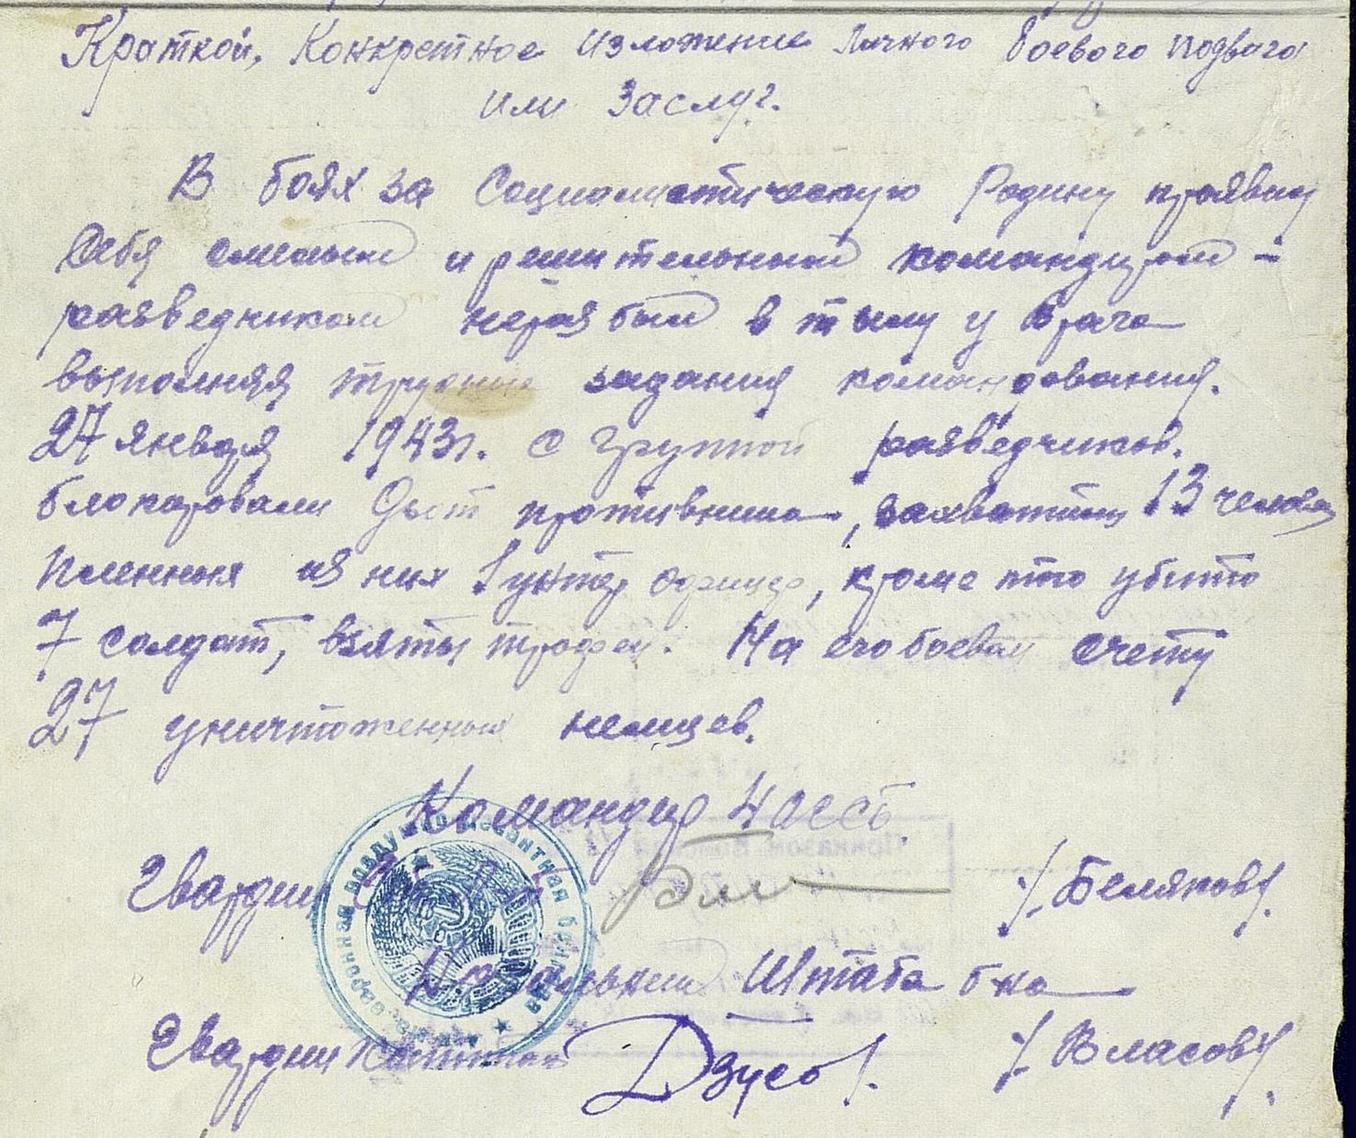 Краткой, Конкретное изложение личного боевого подвига
или заслуг.
В боях за Социалистическую Родину проявил
Себя смелым и решительным командиром -
разведчиком неразбыл в тылу у врага
выполняя трудные задания командования.
27 января 1943г. с группой разведчиков.
блокировали Дзот противника, захватили 13 человек
пленных из них 1 унтер офицер, кроме того убито
7 солдат, взяты трофеи. На его боевом счету
27 уничтоженных немцев.
Командир 4 ОССБ.
Гвардии /. Беляков/.
Начальник Штаба б-на
Гвардии Капитан Дзусо /. /. Власов/
воздушно десантная